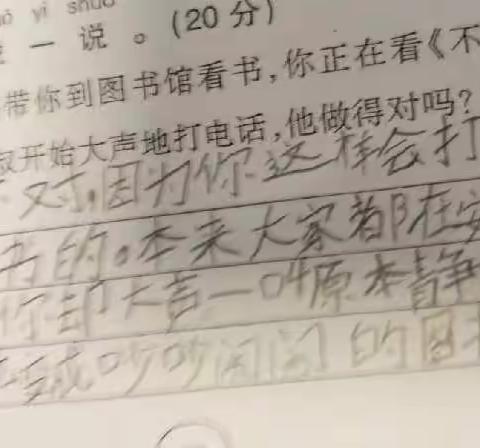 yì shuō
一说。(20分)
带你到图书馆看书,你正在看《不
叔开始大声地打电话,他做得对吗?
不对,因为你这样会打
书的。本来大家都在安
你却大声一叫原本静
变成吵吵闹闹的图书